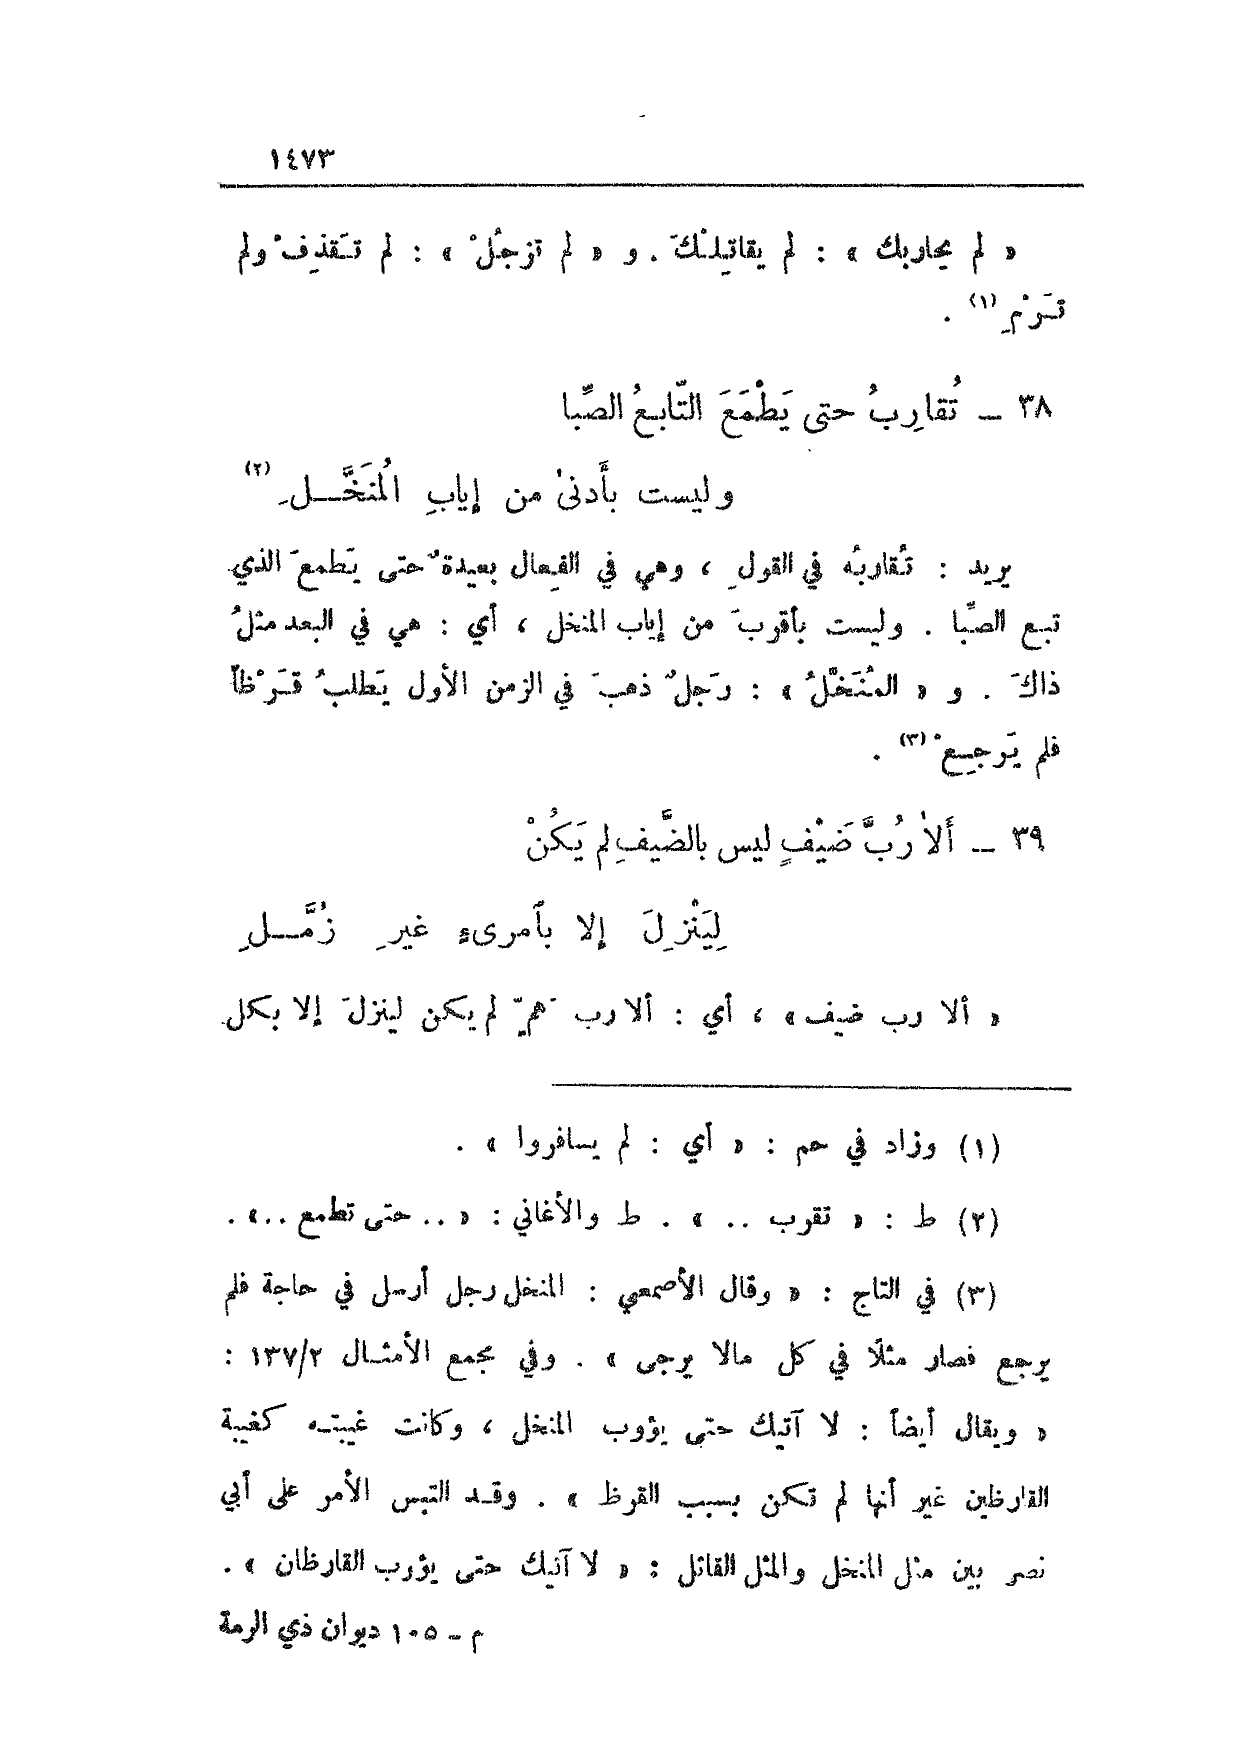 ١٤٧٣
« لم يحاربك » : لم يقاتِلْكَ . و « لم تزجُلْ » : لم تَقذِفْ ولم
تَرْمِ (١) .
٣٨ ــ تُقارِبُ حتى يَطْمَعَ التّابعُ الصِّبا
وليست بأَدنىٰ من إيابِ الُمنَخَّـــلِ (٢)
يريد : تُقاربُه في القولِ ، وهي في الفِعال بعيدةٌ حتى يَطمعَ الذي
تبع الصِّبا . وليست بأقربَ من إياب المنخل ، أي : هي في البعد مثلُ
ذاكَ . و « المُنَخَّلُ » : رَجلٌ ذهبَ في الزمن الأول يَطلبُ قَرَْظاً
فلم يَرجِعْ (٣) .
٣٩ ــ أَلا رُبَّ ضَيْفٍ ليس بالضَّيفِ لم يَكُنْ
لِيَنْزِلَ إلا بآمرىءٍ غيرِ زُمَّـــلِ
« ألا رب ضيف » ، أي : ألا رب هَمٍّ لم يكن لينزلَ إلا بكل
(١) وزاد في حم : « أي : لم يسافروا » .
(٢) ط : « تقرب .. » . ط والأغاني : « .. حتى تطمع ..» .
(٣) في التاج : « وقال الأصمعي : المنخل رجل أرسل في حاجة فلم
يرجع فصار مثلًا في كل مالا يرجى » . وفي مجمع الأمثـال ١٣٧/٢ :
« ويقال أيضاً : لا آتيك حتى يؤوب المنخل ، وكانت غيبتـه كغيبة
القارظين غير أنها لم تكن بسبب القرظ » . وقـد التبس الأمر على أبي
نصر بين مثل المنخل والمثل القائل : « لا آتيك حتى يؤرب القارظان » .
م ــ ١٠٥ ديوان ذي الرمة